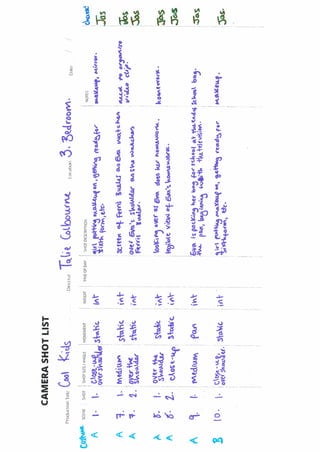 CAMERA SHOT LIST
Production Title: Cool Kids Director: Talie Colbourne Location: 3. Bedroom. Date: / /
Camera SCENE SHOT SHOT SIZE / ANGLE MOVEMENT INT/EXT TIME OF DAY SHOT DESCRIPTION NOTES
A 1. 1. Close-up, over shoulder static int girl putting makeup on, getting ready for sixth form, etc makeup, mirror. Jas
A 7. 1. Medium static int screen of Ferris Bueller as Eva watches him need to organise video clip. Jas
A 7. 2. over the shoulder static int over Eva's shoulder as she watches Ferris Bueller. Jas
A 8. 1. over the shoulder static int looking over as Eva does her homework. homework. Jas
A 8. 2. close-up static int tight view of Eva's homework. Jas
A 9. 1. medium pan int Eva is packing her bag for school at the end, the pan, beginning with the television. school bag. Jas
B 10. 1. Close-up, over shoulder. static int girl putting makeup on, getting ready for sixth form, etc. makeup. Jas